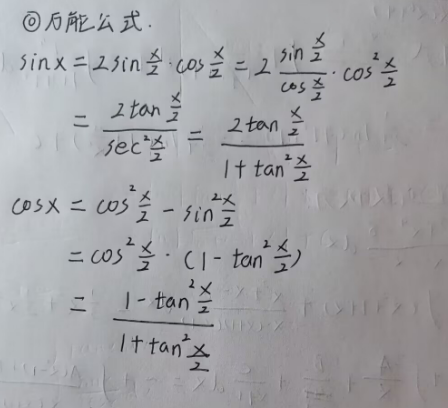 ◎万能公式.
sinx = 2sin x/2 · cos x/2 = 2 (sin x/2)/(cos x/2) · cos² x/2
= (2tan x/2)/(sec² x/2) = (2tan x/2)/(1+tan² x/2)
cosx = cos² x/2 - sin² x/2
= cos² x/2 · (1-tan² x/2)
= (1-tan² x/2)/(1+tan² x/2)